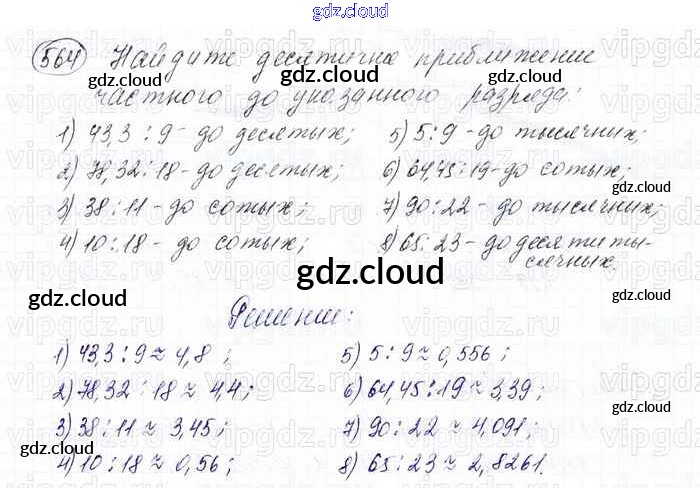 gdz.cloud
564 Найдите десятичное приближение
частного до указанного разряда:
1) 43,3 : 9 - до десятых;
2) 78,32 : 18 - до десятых;
3) 38 : 11 - до сотых;
4) 10 : 18 - до сотых;
5) 5 : 9 - до тысячных;
6) 64,45 : 19 - до сотых;
7) 90 : 22 - до тысячных;
8) 65 : 23 - до десятиты-
сячных.
Решение:
1) 43,3 : 9 ≈ 4,8 ;
2) 78,32 : 18 ≈ 4,4;
3) 38 : 11 ≈ 3,45;
4) 10 : 18 ≈ 0,56;
5) 5 : 9 ≈ 0,556;
6) 64,45 : 19 ≈ 3,39;
7) 90 : 22 ≈ 4,091;
8) 65 : 23 ≈ 2,8261.
gdz.cloud
gdz.cloud
gdz.cloud
gdz.cloud
gdz.cloud
gdz.cloud
gdz.cloud
gdz.cloud
gdz.cloud
gdz.cloud
gdz.cloud